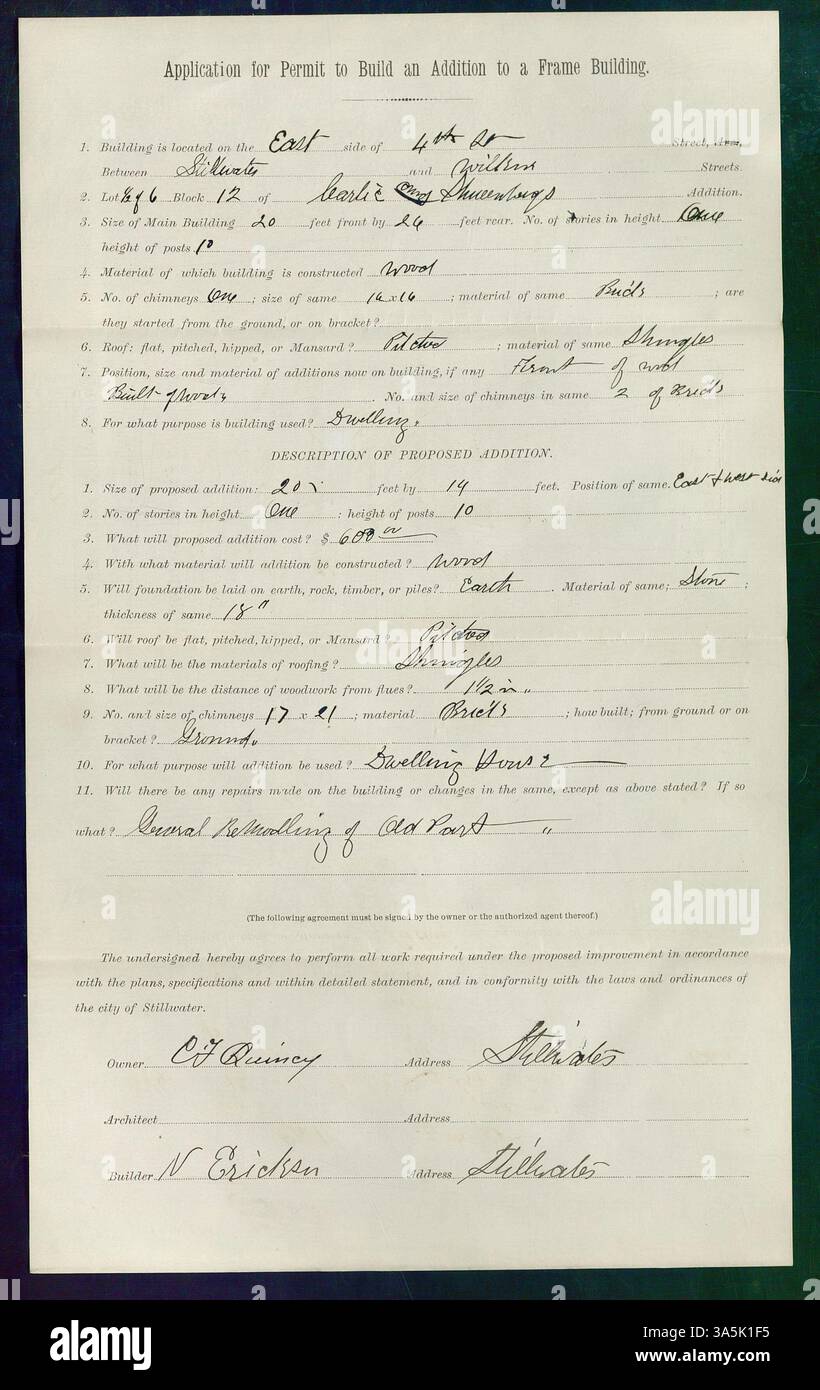 Application for Permit to Build an Addition to a Frame Building.
1. Building is located on the East side of 4th St Street, Ave.
Between Stillwater and Wilkin Streets.
2. Lot ½ of 6 Block 12 of Carli & Addition.
3. Size of Main Building 20 feet front by 26 feet rear. No. of stories in height One
height of posts 10
4. Material of which building is constructed wood
5. No. of chimneys One ; size of same 16 x 16 ; material of same ; are
they started from the ground, or on bracket?
6. Roof: flat, pitched, hipped, or Mansard? Pitched ; material of same Shingles
7. Position, size and material of additions now on building, if any Front of wood
Built of wood . No. and size of chimneys in same 2 of
8. For what purpose is building used? Dwelling.
DESCRIPTION OF PROPOSED ADDITION.
1. Size of proposed addition: 20 feet by 14 feet. Position of same. East & west side
2. No. of stories in height One : height of posts 10
3. What will proposed addition cost? $ 600 00
4. With what material will addition be constructed? wood
5. Will foundation be laid on earth, rock, timber, or piles? Earth . Material of same; Stone ;
thickness of same 18"
6. Will roof be flat, pitched, hipped, or Mansard? Pitched
7. What will be the materials of roofing? Shingles
8. What will be the distance of woodwork from flues? 1 1/2 in "
9. No. and size of chimneys 17 x 21 ; material ; how built; from ground or on
bracket? Ground.
10. For what purpose will addition be used? Dwelling House
11. Will there be any repairs made on the building or changes in the same, except as above stated? If so
what? General Remodling of Old Part "
(The following agreement must be signed by the owner or the authorized agent thereof.)
The undersigned hereby agrees to perform all work required under the proposed improvement in accordance
with the plans, specifications and within detailed statement, and in conformity with the laws and ordinances of
the city of Stillwater.
Owner C F Quincy Address Stillwater
Architect Address
Builder N Erickson Address Stillwater
alamy
Image ID: 3A5K1F5
www.alamy.com